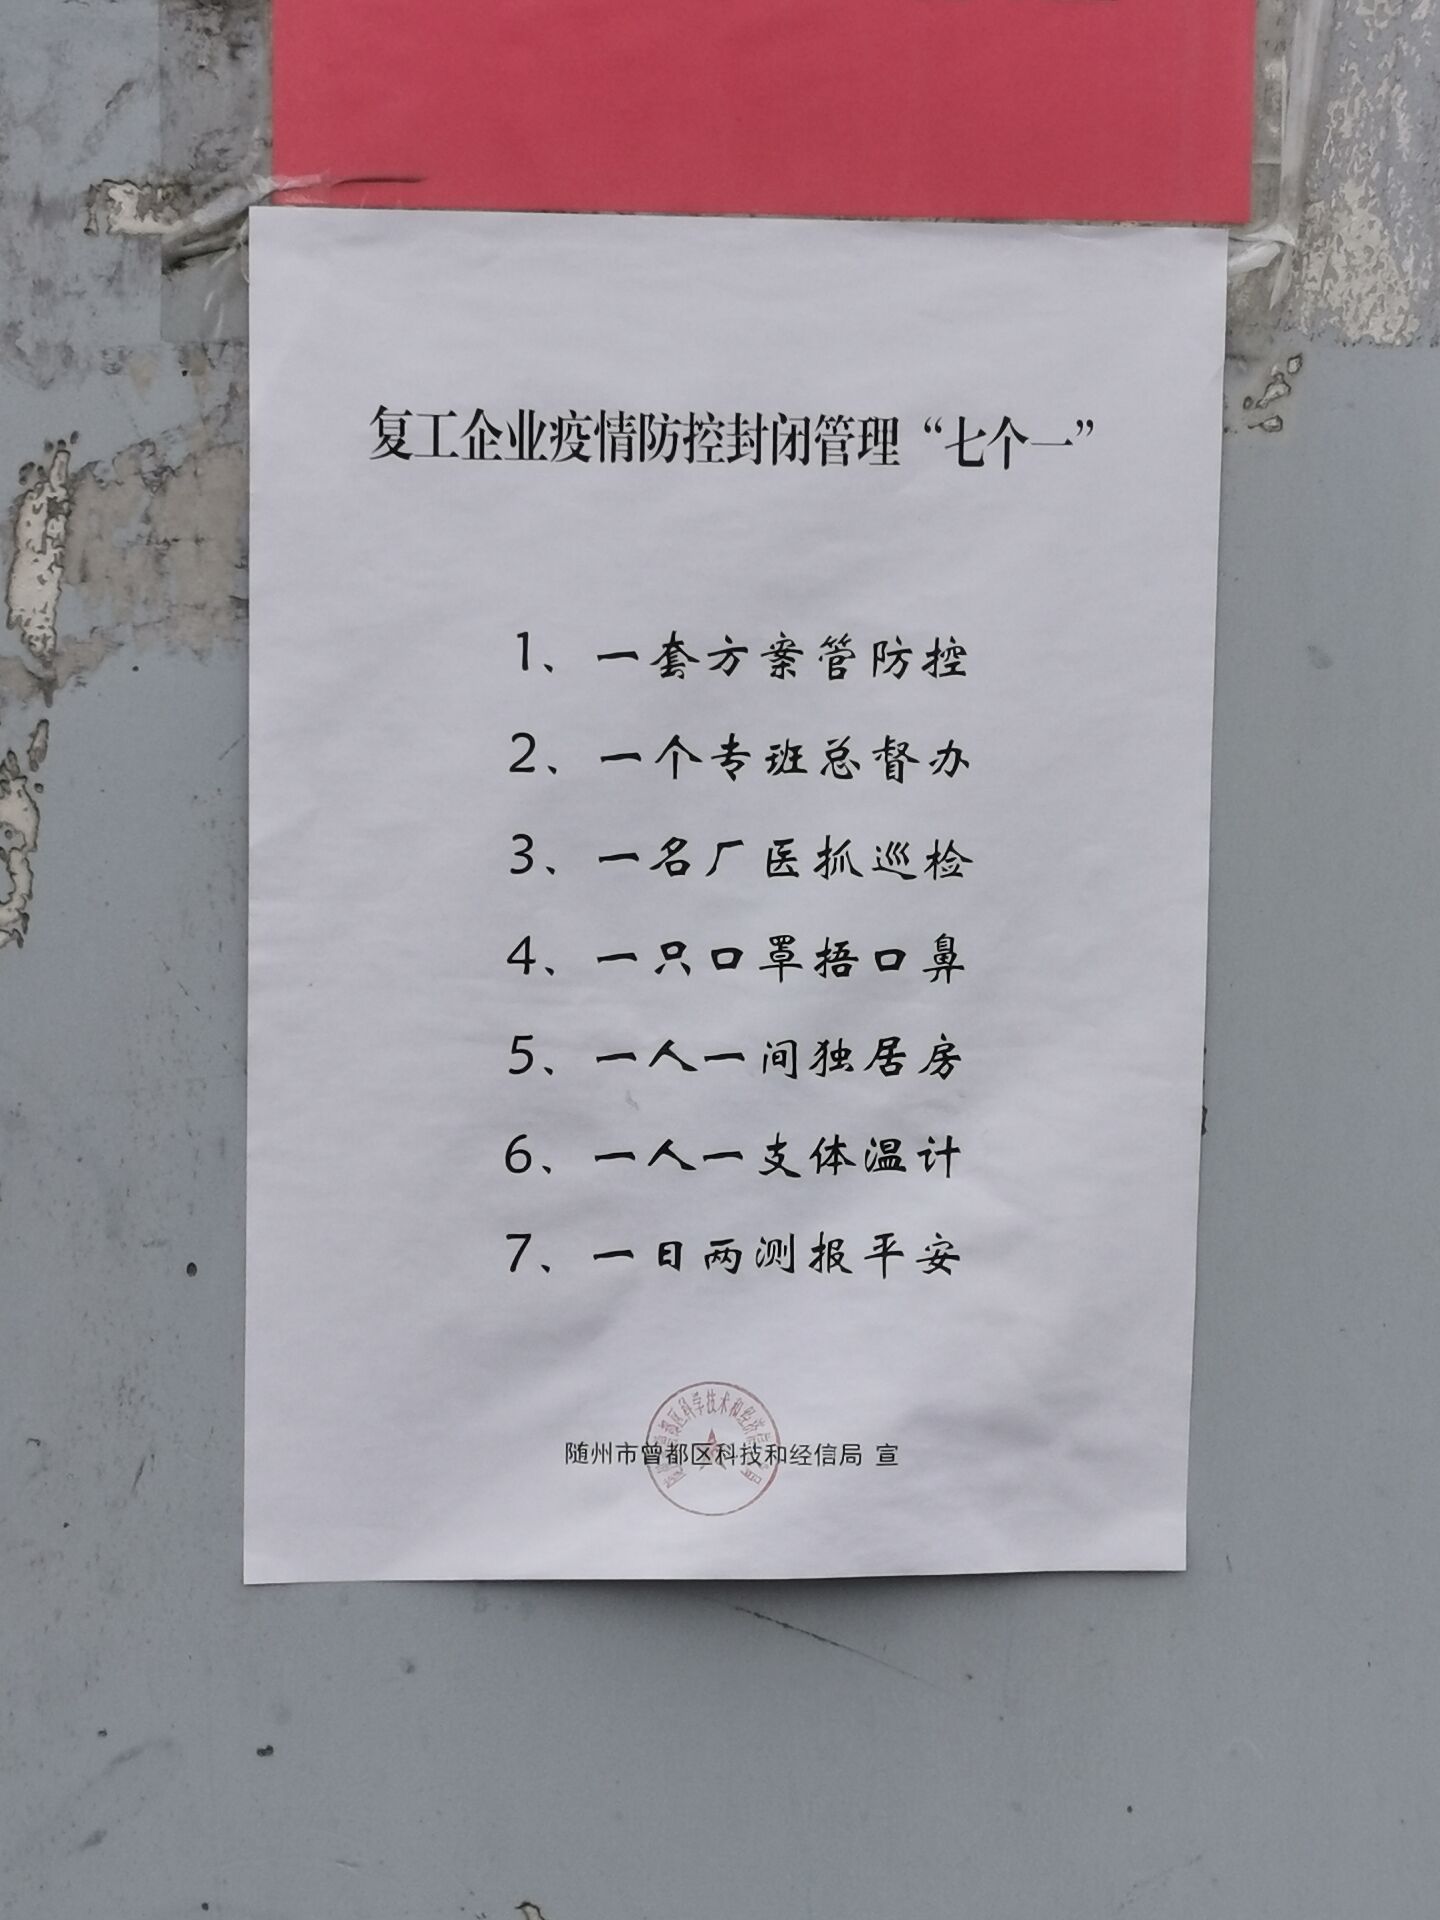 复工企业疫情防控封闭管理“七个一”
1、一套方案管防控
2、一个专班总督办
3、一名厂医抓巡检
4、一只口罩捂口鼻
5、一人一间独居房
6、一人一支体温计
7、一日两测报平安
随州市曾都区科技和经信局 宣
都区科学技术和经济信